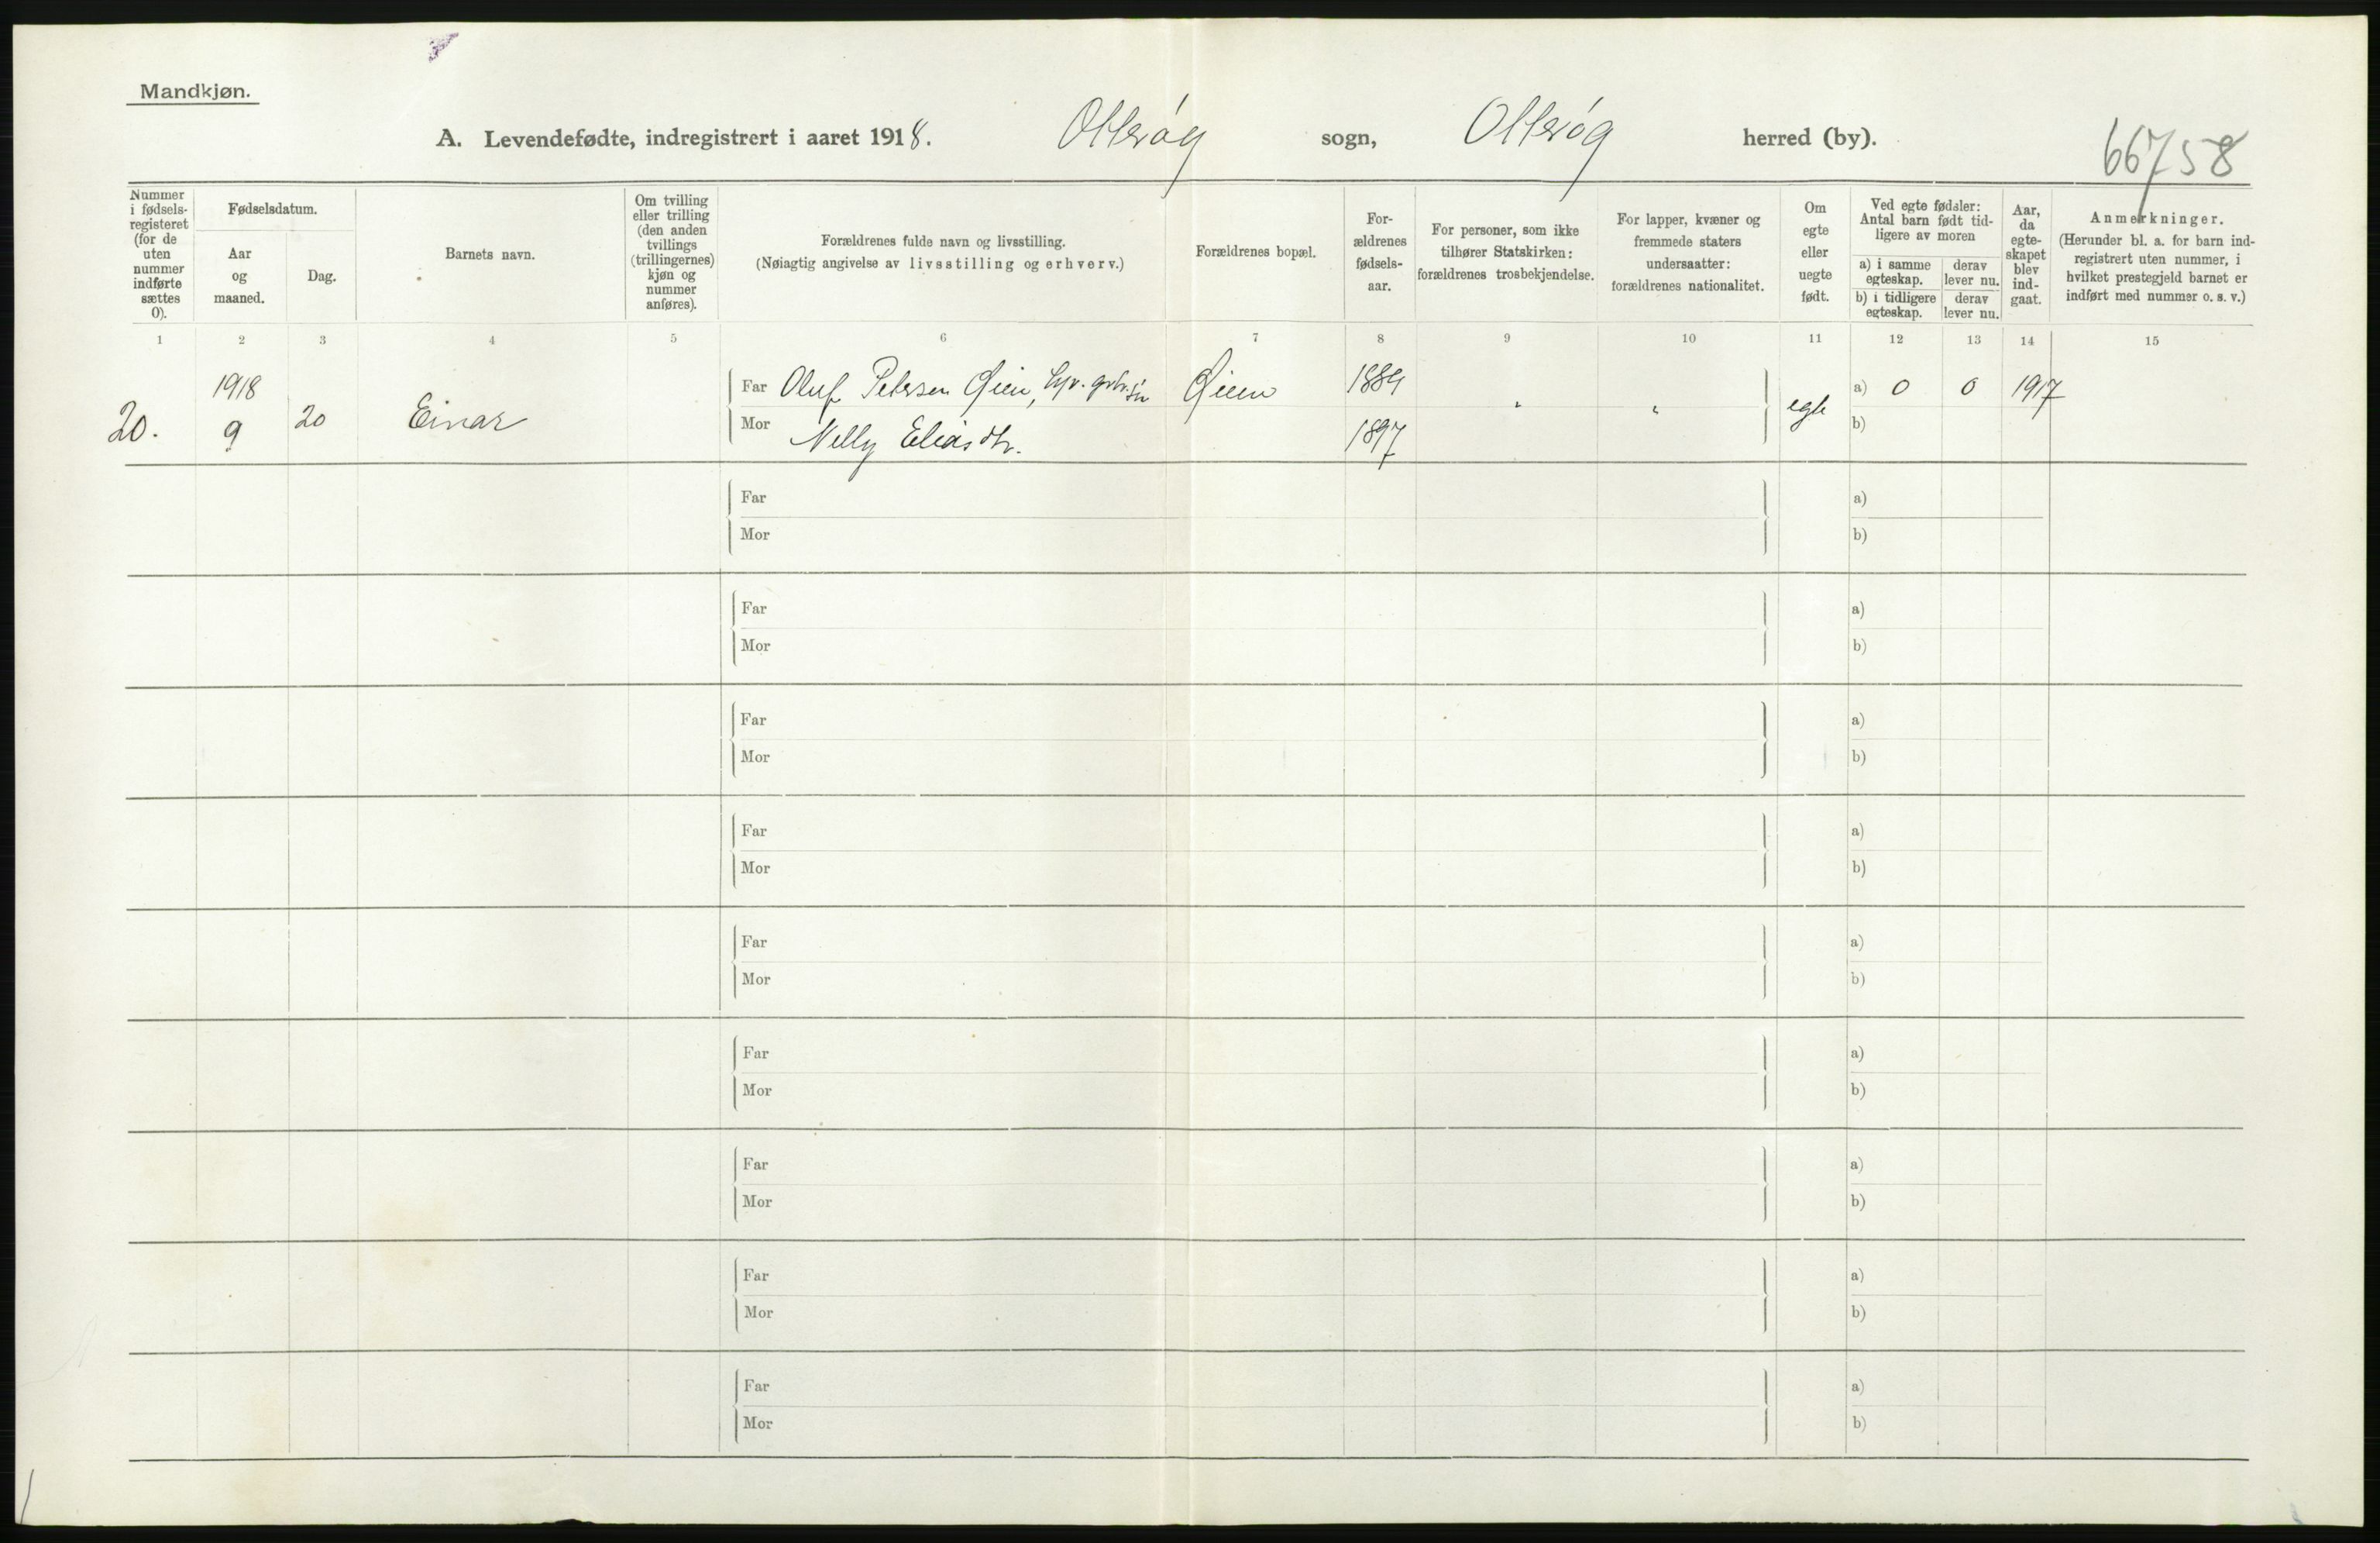 Mandkjøn.
A. Levendefødte, indregistrert i aaret 1918. Otterøy sogn, Otterøy herred (by).
66758
Nummer i fødsels-registeret (for de uten nummer indførte sættes 0).
Fødselsdatum.
Aar og maaned.
Dag.
Barnets navn.
Om tvilling eller trilling (den anden tvillings (trillingernes) kjøn og nummer anføres).
Forældrenes fulde navn og livsstilling.
(Nøiagtig angivelse av livsstilling og erhverv.)
Forældrenes bopæl.
For-ældrenes fødsels-aar.
For personer, som ikke tilhører Statskirken: forældrenes trosbekjendelse.
For lapper, kvæner og fremmede staters undersaatter: forældrenes nationalitet.
Om egte eller uegte født.
Ved egte fødsler: Antal barn født tid-ligere av moren
a) i samme egteskap.
derav lever nu.
b) i tidligere egteskap.
derav lever nu.
Aar, da egte-skapet blev ind-gaat.
Anmerkninger.
(Herunder bl. a. for barn ind-registrert uten nummer, i hvilket prestegjeld barnet er indført med nummer o. s. v.)
1 2 3 4 5 6 7 8 9 10 11 12 13 14 15
20. 1918 9 20 Einar
Far Oluf Petersen Øien, Øien 1884 " " egte a) 0 0 1917
Mor Nelly Eliasdtr. 1897 b)
Far a)
Mor b)
Far a)
Mor b)
Far a)
Mor b)
Far a)
Mor b)
Far a)
Mor b)
Far a)
Mor b)
Far a)
Mor b)
Far a)
Mor b)
Far a)
Mor b)